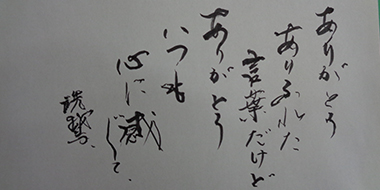 ありがとう
ありふれた
言葉だけど
ありがとう
いつも
心に感
じて